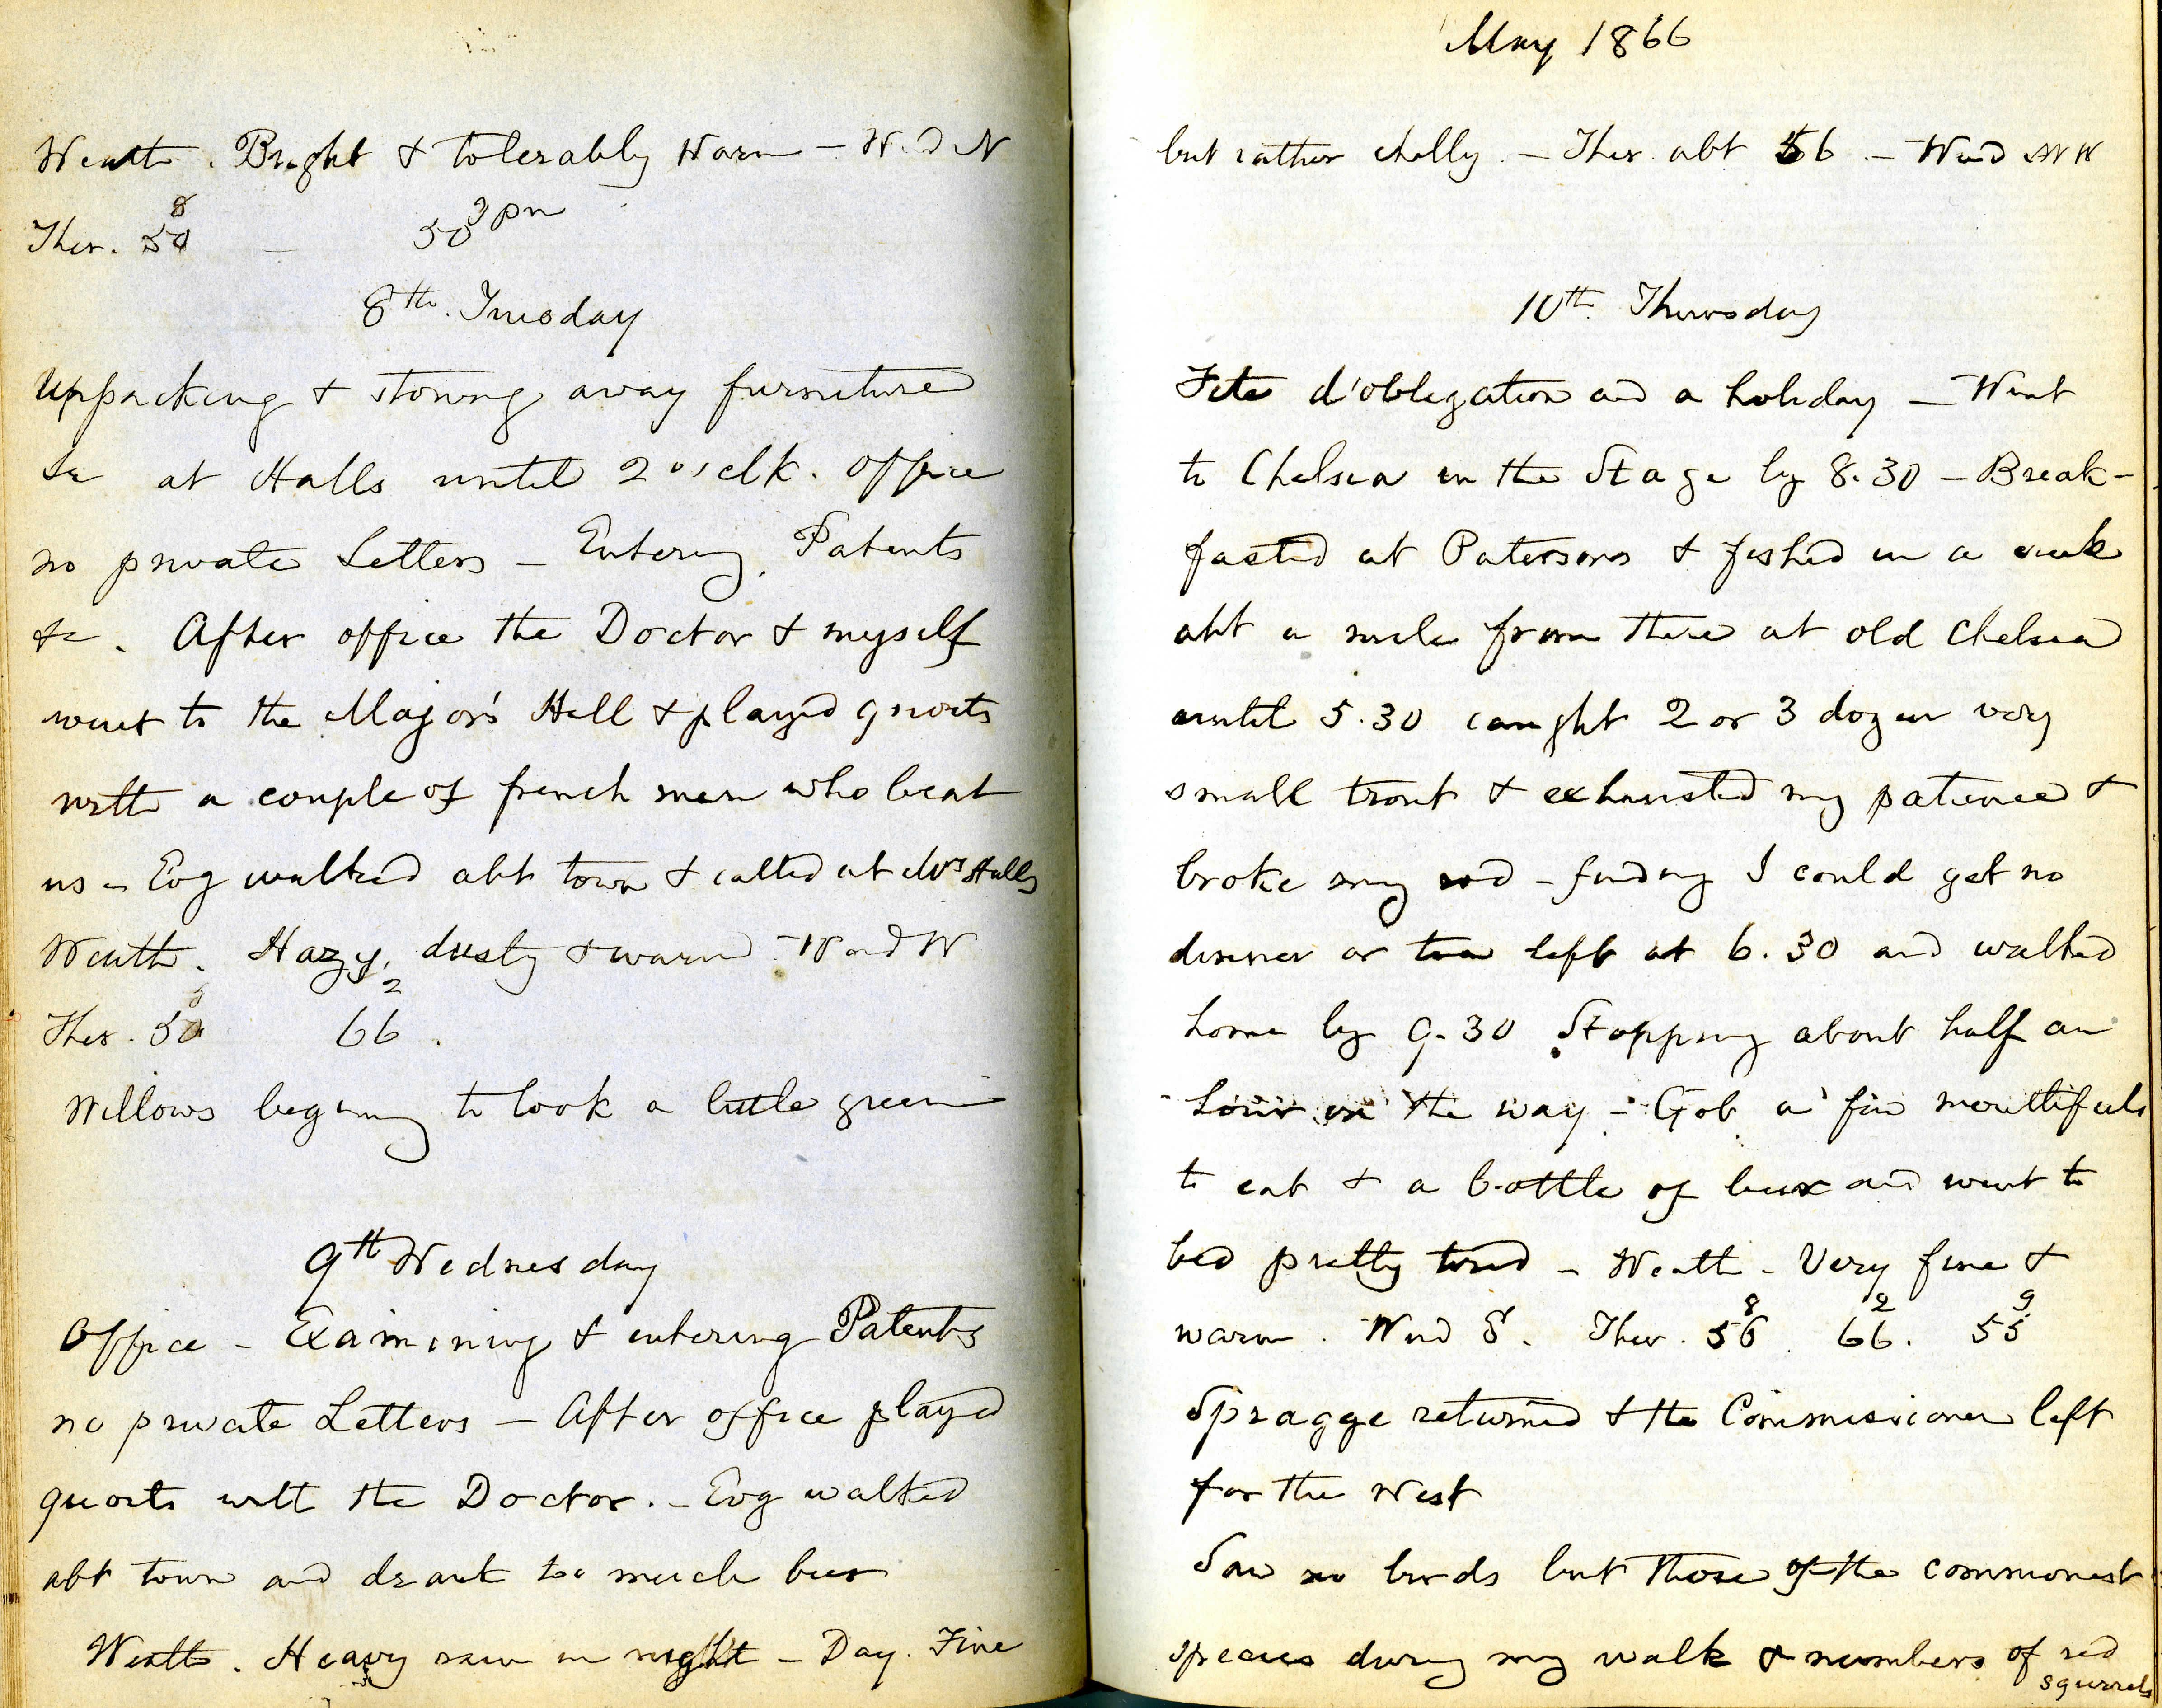 Weath. Bright & tolerably Warm – Wd N
8 3 pm
Ther. 50 – 50
8th. Tuesday
Unpacking & stowing away furniture
&c at Halls until 2 o'clk. Office
no private Letters – Entering Patents
&c. After office the Doctor & myself
went to the Major's Hill & played quoits
with a couple of french men who beat
us – Evg walked abt town & called at Mrs Halls
Weath. Hazy, dusty & warm – Wind W
8 2
Ther. 50 66.
Willows beginning to look a little green
9th Wednesday
Office – Examining & entering Patents
no private Letters – After office played
quoits with the Doctor. – Evg walked
abt town and drank too much beer
Weath. Heavy rain in night – Day. Fine
May 1866
but rather chilly. – Ther. abt 56 – Wind NW
10th. Thursday
Fete d'obligation and a holiday – Went
to Chelsea in the Stage by 8.30 – Break-
fasted at Patersons & fished in a creek
abt a mile from there at old Chelsea
until 5.30 caught 2 or 3 dozen very
small trout & exhausted my patience &
broke my rod – finding I could get no
dinner or tea left at 6.30 and walked
home by 9.30 Stopping about half an
hour on the way – Got a few mouthfuls
to eat & a bottle of beer and went to
bed pretty tired – Weath – Very fine &
8 2 9
warm. Wind S. Ther. 56 66. 55
Spragge returned & the Commissioner left
for the West
Saw no birds but those of the commonest
species during my walk & numbers of red
squirrels